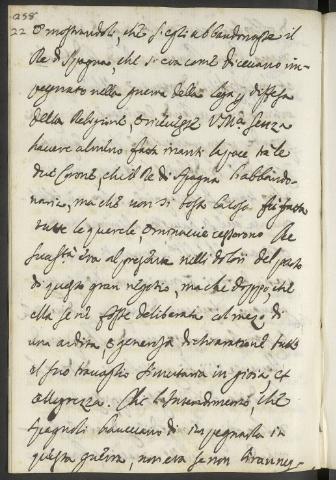 258
22 Et mostrandoli, che s'egli abbandonasse il
Rè di Spagna, che si era come dicevano im-
pegnato nella guerra della lega per difesa
della Religione, senza
havere almeno fatta inanti la pace tra le
due Corone, che il Rè di Spagna l'abbando-
naria, ma che non si tosto la cosa fù fatta
tutte le querele, e minaccie cessorono. Che
era al presente nelli dolori del parto
di questo gran negotio, ma che doppo, che
ella se ne fosse deliberata al mezo di
una ardita, e generosa dichiaratione tutto
il suo travaglio si mutaria in gioia, et
allegrezza. Che l'intendimento, che
spagnoli havevano di impegnarla in
questa guerra, non era se non